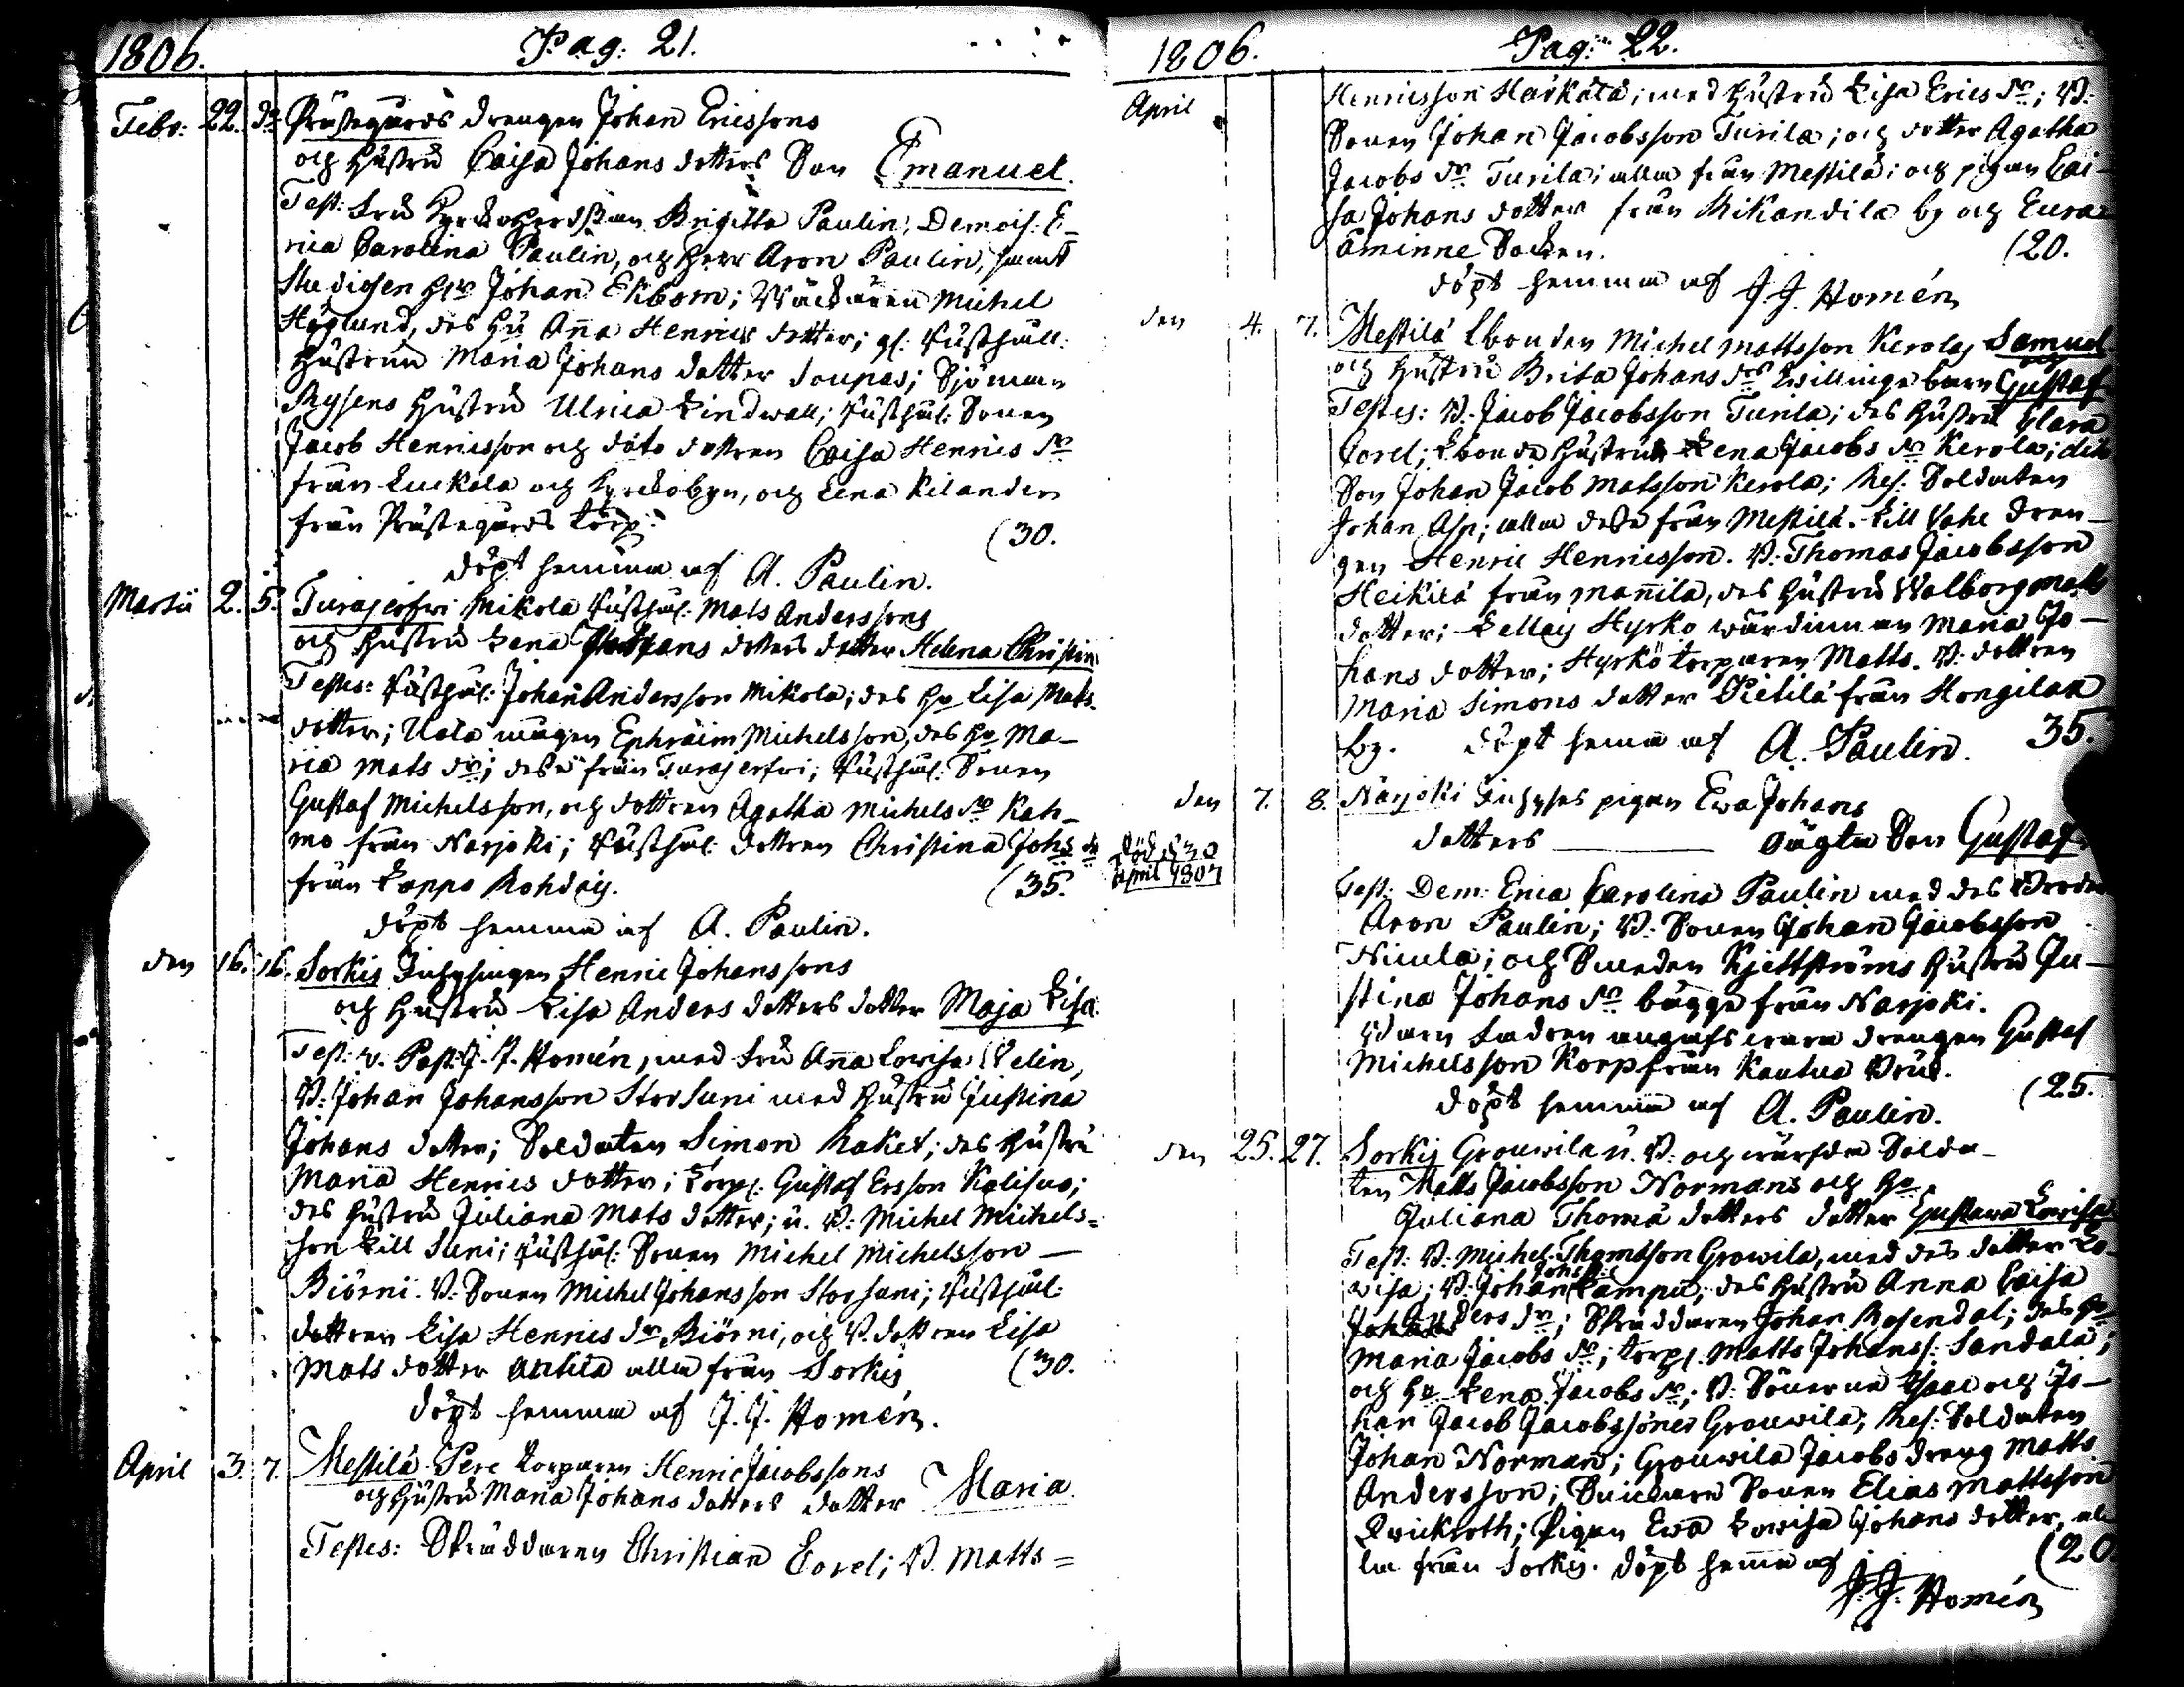 1806. Pag: 21.
Febr: 22. do Prästegårds drengen Johan Ericssons
och Hustru Caisa Johans dotters Son Emanuel.
Test: Fru Kyrkoherdskan Brigitta Paulin, Demois: E-
rica Carolina Paulin, och Herr Aron Paulin, samt
Studiosen Hr Johan Ekbom; Michel
Höglund, des Hu Anna Henrics dotter; gl: Rusthåll:
Hustrun Maria Johans dotter Soupas; Sjöman
Rysens Hustru Ulrica Lindwall; Rusthål: Sonen
Jacob Henricsson och dito dottren Caisa Henrics dr
från Luckola och Kyrckobyn, och Lena Kilanden
från Prästegårds torp. (30.
döpt hemma af A. Paulin.
Martii 2. 5. Turajerfwi Mikola Rusthål: Mats Anderssons
och Hustru Lena dotters dotter Helena Christin
Testes: Rusthål: Johan Andersson Mikola; des Hu Lisa Mats
dotter; Uola mågen Ephraim Michelsson, des Hu Ma-
ria Mats dr; desse från Turajerfwi; Rusthål: Sonen
Gustaf Michelsson, och dottren Agatha Michels dr Kah-
mo från Narjoki; Rusthål: dottren Christina Johs dr
från Lappo (35.
döpt hemma af A. Paulin.
den 16. 16. Sorkis Inhysingen Henric Johanssons
och Hustru Lisa Anders dotters dotter Maja Lisa.
Test: v. Past: J. J. Homén, med Fru Anna Lovisa Velin,
B: Johan Johansson Stor Suni med Hustru Justina
Johans dotter; Soldaten Simon Raket; des Hustru
Maria Henrics dotter; Torp: Gustaf Ersson Kalisuo;
des Hustru Juliana Mats dotter; u. B: Michel Michels=
son Lill Suni; Rusthål: Sonen Michel Michelsson
Biörni. B: Sonen Michel Johansson Storsuni; Rusthål:
dottren Lisa Henrics dr Biörni, och B. dottren Lisa
Mats dotter Anttila alla från Sorkis (30.
döpt hemma af J. J. Homén.
April 3. 7. Mestilä Pere torparen Henric Jacobssons
och Hustru Maria Johans dotters dotter Maria
Testes: Skräddaren Christian Corel; B. Matts=
1806. Pag: 22.
April Henricsson Harkala; med Hustru Lisa Erics dr; B:
Sonen Johan Jacobsson Turila; och dotter Agatha
Jacobs dr Turila; alla från Mestilä; och pigan Cai-
sa Johans dotter från Rikandila by och Eura
Åminne Socken. (20.
döpt hemma af J. J. Homén
den 4. 7. Mestilä Lbonden Michel Mattsson Kerolas Samuel
och Hustru Brita Johans drs twillinge barn och Gustaf
Testes: B: Jacob Jacobsson Turila; des Hustru Clara
Corel; Lbonde Hustrun Lena Jacobs dr Kerola; dito
Son Johan Jacob Matsson Kerola; Res. Soldaten
Johan Asp; alla desse från Mestilä. Lill Vahe dren-
gen Henric Henricsson. B: Thomas Jacobsson
Heikilä från Mannila, des Hustru Walborg Mats
dotter; Hyrko wärdinnan Maria Jo-
hans dotter; Hyrkö torparen Matts. B: dottren
Maria Simons dotter Pietilä från Hongilan
by. döpt hema af A. Paulin. 35.
den 7. 8. Narjoki Inhyses pigan Ewa Johans
dotters oägta Son Gustaf
Död d 30
April 1807
Test: Dem: Erica Carolina Paulin med des Broder
Aron Paulin; B: Sonen Johan Jacobsson
Nicula; och Smeden Kjellströms Hustru Ju-
stina Johans dr bägge från Narjoki.
Barn fadren angafs wara drengen Gustaf
Michelsson Korp från Kautua Bruk.
döpt hemma af A. Paulin. (25.
den 25. 27. Sorkis Grouwila u. B: och wärfda Solda-
ten Matts Jacobsson Normans och Hu
Juliana Thomä dotters dotter Gustava Lovisa
Test: B: Michel Thomasson Growila, med des dotter Lo-
wisa; B: Johan Johss: Lampu; des Hustru Anna Caisa
Anders dr; Skräddaren Johan Rosendal; des Hu
Maria Jacobs dr; torp: Matts Johanss: Sandala;
och Hu Lena Jacobs dr; B: Sönerne Isaac och Jo-
han Jacob Jacobssöner Grouwila; Res: Soldaten
Johan Norman; Grouwila Jacobs dreng Matts
Andersson; Snickare Sonen Elias Mattsson
Qwickroth; Pigan Ewa Lovisa Johans dotter, al-
la från Sorkis. döpt hema af (20.
J. J. Homén